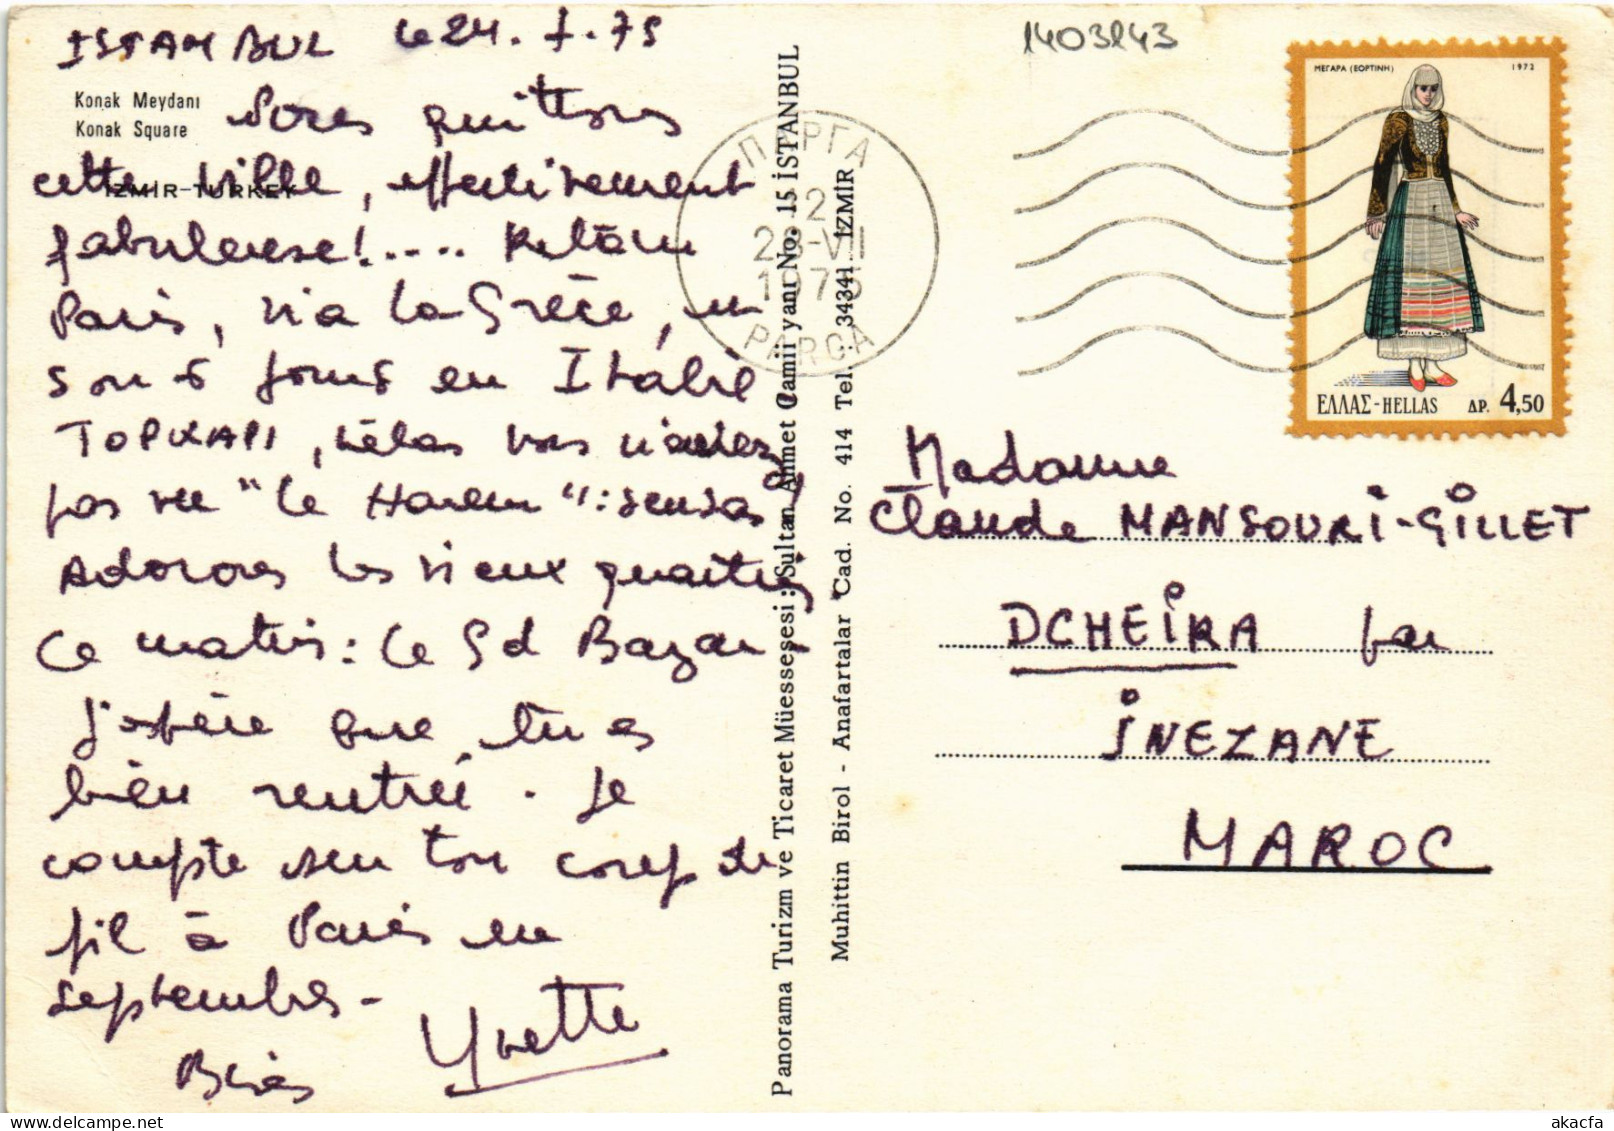 ISTAMBUL le 24.7.75
Konak Meydanı
Konak Square
IZMIR-TURKEY
Nous quittons
cette ville, effectivement
fabuleuse!.... Retour
Paris, via la Grèce, en
5 ou 6 jours en Italie
TOPKAPI, hélas vous n'aviez
pas vu "le Harem": sensas
Adorons les vieux quartiers
Ce matin: le Gd Bazar -
J'espère que tu es
bien rentrée. Je
compte sur ton coup de
fil à Paris en
septembre -
Bises Yvette
Panorama Turizm ve Ticaret Müessesesi : Sultan Ahmet Camii yanı No. 15 İSTANBUL
Muhittin Birol - Anafartalar Cad. No. 414 Tel. : 34341. İZMİR
1403143
ΠΑΡΓΑ
12
28-VII
1975
PARGA
ΜΕΓΑΡΑ (ΕΟΡΤΙΝΗ) 1973
ΕΛΛΑΣ-HELLAS ΔΡ. 4,50
Madame
Claude MANSOURI-GILLET
DCHEIRA par
INEZANE
MAROC
akacfa